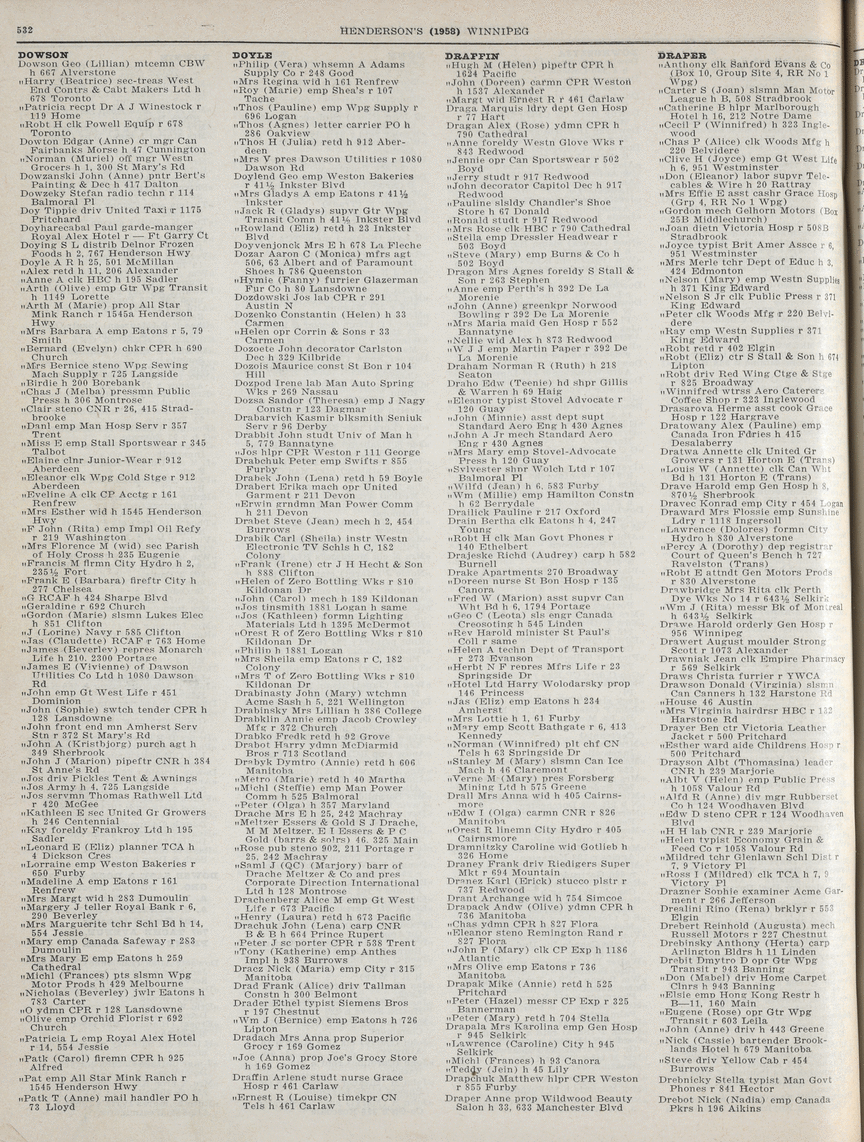 532
HENDERSON'S (1958) WINNIPEG
DOWSON
Dowson Geo (Lillian) mtcemn CBW
h 667 Alverstone
„Harry (Beatrice) sec-treas West
End Contrs & Cabt Makers Ltd h
678 Toronto
„Patricia recpt Dr A J Winestock r
119 Home
„Robt H clk Powell Equip r 678
Toronto
Dowton Edgar (Anne) cr mgr Can
Fairbanks Morse h 47 Cunnington
„Norman (Muriel) off mgr Westn
Grocers h 1, 300 St Mary's Rd
Dowzanski John (Anne) pntr Bert's
Painting & Dec h 417 Dalton
Dowzeky Stefan radio techn r 114
Balmoral Pl
Doy Tippie driv United Taxi r 1175
Pritchard
Doyharecabal Paul garde-manger
Royal Alex Hotel r — Ft Garry Ct
Doying S L distrib Delnor Frozen
Foods h 2, 767 Henderson Hwy
Doyle A R h 25, 501 McMillan
„Alex retd h 11, 206 Alexander
„Anne A clk HBC h 195 Sadler
„Arth (Olive) emp Gtr Wpg Transit
h 1149 Lorette
„Arth M (Marie) prop All Star
Mink Ranch r 1545a Henderson
Hwy
„Mrs Barbara A emp Eatons r 5, 79
Smith
„Bernard (Evelyn) chkr CPR h 690
Church
„Mrs Bernice steno Wpg Sewing
Mach Supply r 725 Langside
„Birdie h 200 Borebank
„Chas J (Melba) pressmn Public
Press h 206 Montrose
„Clair steno CNR r 26, 415 Strad-
brooke
„Danl emp Man Hosp Serv r 357
Trent
„Miss E emp Stall Sportswear r 345
Talbot
„Elaine clnr Junior-Wear r 912
Aberdeen
„Eleanor clk Wpg Cold Stge r 912
Aberdeen
„Eveline A clk CP Acctg r 161
Renfrew
„Mrs Esther wid h 1545 Henderson
Hwy
„F John (Rita) emp Impl Oil Refy
r 219 Washington
„Mrs Florence M (wid) sec Parish
of Holy Cross h 235 Eugenie
„Francis M firmn City Hydro h 2,
235½ Fort
„Frank E (Barbara) fireftr City h
277 Chelsea
„G RCAF h 424 Sharpe Blvd
„Geraldine r 692 Church
„Gordon (Marie) slsmn Lukes Elec
h 851 Clifton
„J (Lorine) Navy r 585 Clifton
„Jas (Claudette) RCAF r 763 Home
„James (Beverley) repres Monarch
Life h 210, 2300 Portage
„James E (Vivienne) of Dawson
Utilities Co Ltd h 1080 Dawson
Rd
„John emp Gt West Life r 451
Dominion
„John (Sophie) swtch tender CPR h
128 Lansdowne
„John front end mn Amherst Serv
Stn r 372 St Mary's Rd
„John A (Kristbjorg) purch agt h
349 Sherbrook
„John J (Marion) pipeftr CNR h 384
St Anne's Rd
„Jos driv Pickles Tent & Awnings
„Jos Army h 4, 725 Langside
„Jos servmn Thomas Rathwell Ltd
r 420 McGee
„Kathleen E sec United Gr Growers
h 246 Centennial
„Kay foreldy Frankroy Ltd h 195
Sadler
„Leonard E (Eliz) planner TCA h
4 Dickson Cres
„Lorraine emp Weston Bakeries r
650 Furby
„Madeline A emp Eatons r 161
Renfrew
„Mrs Margt wid h 283 Dumoulin
„Margery J teller Royal Bank r 6,
290 Beverley
„Mrs Marguerite tchr Schl Bd h 14,
554 Jessie
„Mary emp Canada Safeway r 283
Dumoulin
„Mrs Mary E emp Eatons h 259
Cathedral
„Michl (Frances) pts slsmn Wpg
Motor Prods h 429 Melbourne
„Nicholas (Beverley) jwlr Eatons h
783 Carter
„O ydmn CPR r 128 Lansdowne
„Olive emp Orchid Florist r 692
Church
„Patricia L emp Royal Alex Hotel
r 14, 554 Jessie
„Patk (Carol) firemn CPR h 925
Alfred
„Pat emp All Star Mink Ranch r
1545 Henderson Hwy
„Patk T (Anne) mail handler PO h
73 Lloyd
DOYLE
„Philip (Vera) whsemn A Adams
Supply Co r 248 Good
„Mrs Regina wid h 161 Renfrew
„Roy (Marie) emp Shea's r 107
Tache
„Thos (Pauline) emp Wpg Supply r
696 Logan
„Thos (Agnes) letter carrier PO h
286 Oakview
„Thos H (Julia) retd h 912 Aber-
deen
„Mrs V pres Dawson Utilities r 1080
Dawson Rd
Doylend Geo emp Weston Bakeries
r 41½ Inkster Blvd
„Mrs Gladys A emp Eatons r 41½
Inkster
„Jack R (Gladys) supvr Gtr Wpg
Transit Comn h 41½ Inkster Blvd
„Rowland (Eliz) retd h 23 Inkster
Blvd
Doyvenjonck Mrs E h 678 La Fleche
Dozar Aaron C (Monica) mfrs agt
506, 63 Albert and of Paramount
Shoes h 786 Queenston
„Hymie (Fanny) furrier Glazerman
Fur Co h 80 Lansdowne
Dozdowski Jos lab CPR r 291
Austin N
Dozenko Constantin (Helen) h 33
Carmen
„Helen opr Corrin & Sons r 33
Carmen
Dozoete John decorator Carlston
Dec h 329 Kilbride
Dozois Maurice const St Bon r 104
Hill
Dozpod Irene lab Man Auto Spring
Wks r 269 Nassau
Dozsa Sandor (Theresa) emp J Nagy
Constn r 123 Dagmar
Drabarvich Kasmir blksmith Seniuk
Serv r 96 Derby
Drabbit John studt Univ of Man h
5, 779 Bannatyne
„Jos hlpr CPR Weston r 111 George
Drabchuk Peter emp Swifts r 855
Furby
Drabek John (Lena) retd h 59 Boyle
Drabert Erika mach opr United
Garment r 211 Devon
„Erwin grndmn Man Power Comm
h 211 Devon
Drabet Steve (Jean) mech h 2, 454
Burrows
Drabik Carl (Sheila) instr Westn
Electronic TV Schls h C, 182
Colony
„Frank (Irene) ctr J H Hecht & Son
h 888 Clifton
„Helen of Zero Bottling Wks r 810
Kildonan Dr
„John (Carol) mech h 189 Kildonan
„Jos tinsmith 1881 Logan h same
„Jos (Kathleen) formn Lighting
Materials Ltd h 1395 McDermot
„Orest R of Zero Bottling Wks r 810
Kildonan Dr
„Philip h 1881 Logan
„Mrs Sheila emp Eatons r C, 182
Colony
„Mrs T of Zero Bottling Wks r 810
Kildonan Dr
Drabinasty John (Mary) wtchmn
Acme Sash h 5, 221 Wellington
Drabinsky Mrs Lillian h 386 College
Drabklin Annie emp Jacob Crowley
Mfg r 372 Church
Drabko Fredk retd h 92 Grove
Drabot Harry ydmn McDiarmid
Bros r 713 Scotland
Drabyk Dymtro (Annie) retd h 606
Manitoba
„Metro (Marie) retd h 40 Martha
„Michl (Steffie) emp Man Power
Comm h 525 Balmoral
„Peter (Olga) h 357 Maryland
Drache Mrs E h 25, 242 Machray
„Meltzer Essers & Gold S J Drache,
M M Meltzer. E I Essers & P C
Gold (barrs & solrs) 46. 325 Main
„Rose pub steno 902, 211 Portage r
25, 242 Machray
„Saml J (QC) (Marjory) barr of
Drache Meltzer & Co and pres
Corporate Direction International
Ltd h 128 Montrose
Drachenberg Alice M emp Gt West
Life r 673 Pacific
„Henry (Laura) retd h 673 Pacific
Drachuk John (Lena) carp CNR
B & B h 664 Prince Rupert
„Peter J sc porter CPR r 538 Trent
„Tony (Katherine) emp Anthes
Impl h 938 Burrows
Dracz Nick (Maria) emp City r 315
Manitoba
Drad Frank (Alice) driv Tallman
Constn h 300 Belmont
Drader Ethel typist Siemens Bros
r 197 Chestnut
„Wm J (Bernice) emp Eatons h 726
Lipton
Dradach Mrs Anna prop Superior
Grocy r 169 Gomez
„Joe (Anna) prop Joe's Grocy Store
h 169 Gomez
Draffin Arlene studt nurse Grace
Hosp r 461 Carlaw
„Ernest R (Louise) timekpr CN
Tels h 461 Carlaw
DRAFFIN
„Hugh M (Helen) pipeftr CPR h
1624 Pacific
„John (Doreen) carmn CPR Weston
h 1537 Alexander
„Margt wid Ernest R r 461 Carlaw
Draga Marquis ldry dept Gen Hosp
r 77 Hart
Dragan Alex (Rose) ydmn CPR h
790 Cathedral
„Anne foreldy Westn Glove Wks r
843 Redwood
„Jennie opr Can Sportswear r 502
Boyd
„Jerry studt r 917 Redwood
„John decorator Capitol Dec h 917
Redwood
„Pauline slsldy Chandler's Shoe
Store h 67 Donald
„Ronald studt r 917 Redwood
„Mrs Rose clk HBC r 790 Cathedral
„Stella emp Dressler Headwear r
503 Boyd
„Steve (Mary) emp Burns & Co h
502 Boyd
Dragon Mrs Agnes foreldy S Stall &
Son r 263 Stephen
„Anne emp Perth's h 392 De La
Morenie
„John (Anne) greenkpr Norwood
Bowling r 392 De La Morenie
„Mrs Maria maid Gen Hosp r 552
Bannatyne
„Nellie wid Alex h 873 Redwood
„W J J emp Martin Paper r 392 De
La Morenie
Draham Norman R (Ruth) h 218
Seaton
Draho Edw (Teenie) hd shpr Gillis
& Warren h 69 Haig
„Eleanor typist Stovel Advocate r
120 Guay
„John (Minnie) asst dept supt
Standard Aero Eng h 430 Agnes
„John A Jr mech Standard Aero
Eng r 430 Agnes
„Mrs Mary emp Stovel-Advocate
Press h 120 Guay
„Sylvester shnr Wolch Ltd r 107
Balmoral Pl
„Wilfd (Jean) h 6, 583 Furby
„Wm (Millie) emp Hamilton Constn
h 62 Berrydale
Drailick Pauline r 217 Oxford
Drain Bertha clk Eatons h 4, 247
Young
„Robt H clk Man Govt Phones r
140 Ethelbert
Drajeske Richl (Audrey) carp h 582
Burnell
Drake Apartments 270 Broadway
„Doreen nurse St Bon Hosp r 135
Canora
„Fred W (Marion) asst supvr Can
Wht Bd h 6, 1794 Portage
„Geo C (Leota) sls engr Canada
Creosoting h 545 Linden
„Rev Harold minister St Paul's
Coll r same
„Helen A techn Dept of Transport
r 273 Evanson
„Herbt N F repres Mfrs Life r 23
Springside Dr
„Hotel Ltd Harry Wolodarsky prop
146 Princess
„Jas (Eliz) emp Eatons h 234
Amherst
„Mrs Lottie h 1, 61 Furby
„Mary emp Scott Bathgate r 6, 413
Kennedy
„Norman (Winnifred) plt chf CN
Tels h 63 Springside Dr
„Stanley M (Mary) slsmn Can Ice
Mach h 46 Claremont
„Verne M (Mary) pres Forsberg
Mining Ltd h 575 Greene
Drall Mrs Anna wid h 405 Cairns-
more
„Edw I (Olga) carmn CNR r 826
Manitoba
„Orest R linemn City Hydro r 405
Cairnsmore
Dramnitzky Carolina wid Gotlieb h
326 Home
Draney Frank driv Riedigers Super
Mkt r 694 Mountain
Dranez Karl (Erick) stucco plstr r
737 Redwood
Drant Archange wid h 754 Simcoe
Drapack Andw (Olive) ydmn CPR h
736 Manitoba
„Chas ydmn CPR h 827 Flora
„Eleanor steno Remington Rand r
827 Flora
„John P (Mary) clk CP Exp h 1186
Atlantic
„Mrs Olive emp Eatons r 736
Manitoba
Drapak Mike (Annie) retd h 525
Pritchard
„Peter (Hazel) messr CP Exp r 325
Bannerman
„Peter (Mary) retd h 704 Stella
Drapala Mrs Karolina emp Gen Hosp
r 945 Selkirk
„Lawrence (Caroline) City h 945
Selkirk
„Michl (Frances) h 93 Canora
„Teddy (Jein) h 45 Lily
Drapchuk Matthew hlpr CPR Weston
r 855 Furby
Draper Anne prop Wildwood Beauty
Salon h 33, 633 Manchester Blvd
DRAPER
„Anthony clk Sanford Evans & Co
(Box 10, Group Site 4, RR No 1
Wpg)
„Carter S (Joan) slsmn Man Motor
League h B, 508 Stradbrook
„Catherine B hlpr Marlborough
Hotel h 16, 212 Notre Dame
„Cecil P (Winnifred) h 323 Ingle-
wood
„Chas P (Alice) clk Woods Mfg h
220 Belvidere
„Clive H (Joyce) emp Gt West Life
h 6, 951 Westminster
„Don (Eleanor) labor supvr Tele-
cables & Wire h 20 Rattray
„Mrs Effie E asst cashr Grace Hosp
(Grp 4, RR No 1 Wpg)
„Gordon mech Gelhorn Motors (Box
25B Middlechurch)
„Joan dietn Victoria Hosp r 508B
Stradbrook
„Joyce typist Brit Amer Assce r 6,
951 Westminster
„Mrs Merle tchr Dept of Educ h 3,
424 Edmonton
„Nelson (Mary) emp Westn Supplies
h 371 King Edward
„Nelson S Jr clk Public Press r 371
King Edward
„Peter clk Woods Mfg r 220 Belvi-
dere
„Ray emp Westn Supplies r 371
King Edward
„Robt retd r 402 Elgin
„Robt (Eliz) ctr S Stall & Son h 674
Lipton
„Robt driv Red Wing Ctge & Stge
r 825 Broadway
„Winnifred wtrss Aero Caterers
Coffee Shop r 323 Inglewood
Drasarova Herme asst cook Grace
Hosp r 122 Hargrave
Dratowany Alex (Pauline) emp
Canada Iron Fdries h 415
Desalaberry
Dratwa Annette clk United Gr
Growers r 131 Horton E (Trans)
„Louis W (Annette) clk Can Wht
Bd h 131 Horton E (Trans)
Drave Harold emp Gen Hosp h 8,
870½ Sherbrook
Dravec Konrad emp City r 454 Logan
Draward Mrs Flossie emp Sunshine
Ldry r 1118 Ingersoll
„Lawrence (Dolores) formn City
Hydro h 830 Alverstone
„Percy A (Dorothy) dep registrar
Court of Queen's Bench h 727
Ravelston (Trans)
„Robt E attndt Gen Motors Prods
r 830 Alverstone
Drawbridge Mrs Rita clk Perth
Dye Wks No 14 r 643½ Selkirk
„Wm J (Rita) messr Bk of Montreal
h 643½ Selkirk
Drawe Harold orderly Gen Hosp r
956 Winnipeg
Drawert August moulder Strong
Scott r 1073 Alexander
Drawniak Jean clk Empire Pharmacy
r 569 Selkirk
Draws Christa furrier r YWCA
Drawson Donald (Virginia) slsmn
Can Canners h 132 Harstone Rd
„House 46 Austin
„Mrs Virginia hairdrsr HBC r 132
Harstone Rd
Drayer Ben ctr Victoria Leather
Jacket r 500 Pritchard
„Esther ward aide Childrens Hosp r
500 Pritchard
Drayson Albt (Thomasina) leader
CNR h 239 Marjorie
„Albt V (Helen) emp Public Press
h 1058 Valour Rd
„Alfd R (Anne) div mgr Rubberset
Co h 124 Woodhaven Blvd
„Edw D steno CPR r 124 Woodhaven
Blvd
„H H lab CNR r 239 Marjorie
„Helen typist Economy Grain &
Feed Co r 1058 Valour Rd
„Mildred tchr Glenlawn Schl Dist r
7, 9 Victory Pl
„Ross I (Mildred) clk TCA h 7, 9
Victory Pl
Drazner Sophie examiner Acme Gar-
ment r 266 Jefferson
Drealini Rino (Rena) brklyr r 553
Elgin
Drebert Reinhold (Augusta) mech
Russell Motors r 227 Chestnut
Drebinsky Anthony (Herta) carp
Arlington Bldrs h 11 Linden
Drebit Dmytro D opr Gtr Wpg
Transit r 943 Banning
„Don (Mabel) driv Home Carpet
Clnrs h 943 Banning
„Elsie emp Hong Kong Restr h
B—11, 160 Main
„Eugene (Rose) opr Gtr Wpg
Transit r 603 Leila
„John (Anne) driv h 443 Greene
„Nick (Cassie) bartender Brook-
lands Hotel h 679 Manitoba
„Steve driv Yellow Cab r 454
Burrows
Drebnicky Stella typist Man Govt
Phones r 841 Hector
Drebot Nick (Nadia) emp Canada
Pkrs h 196 Aikins